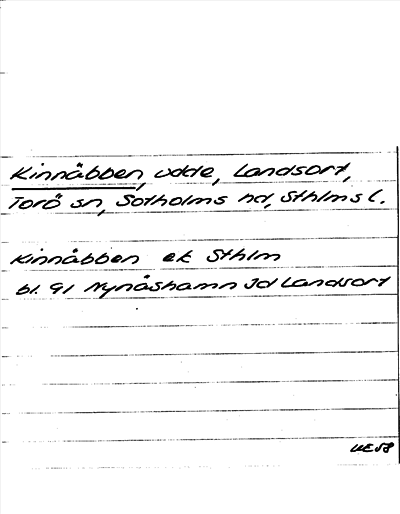 Kinnåbben, udde, Landsort,
Torö sn, Sotholms hd, Sthlms l.
Kinnåbben ek Sthlm
bl. 91 Nynäshamn Jd Landsort